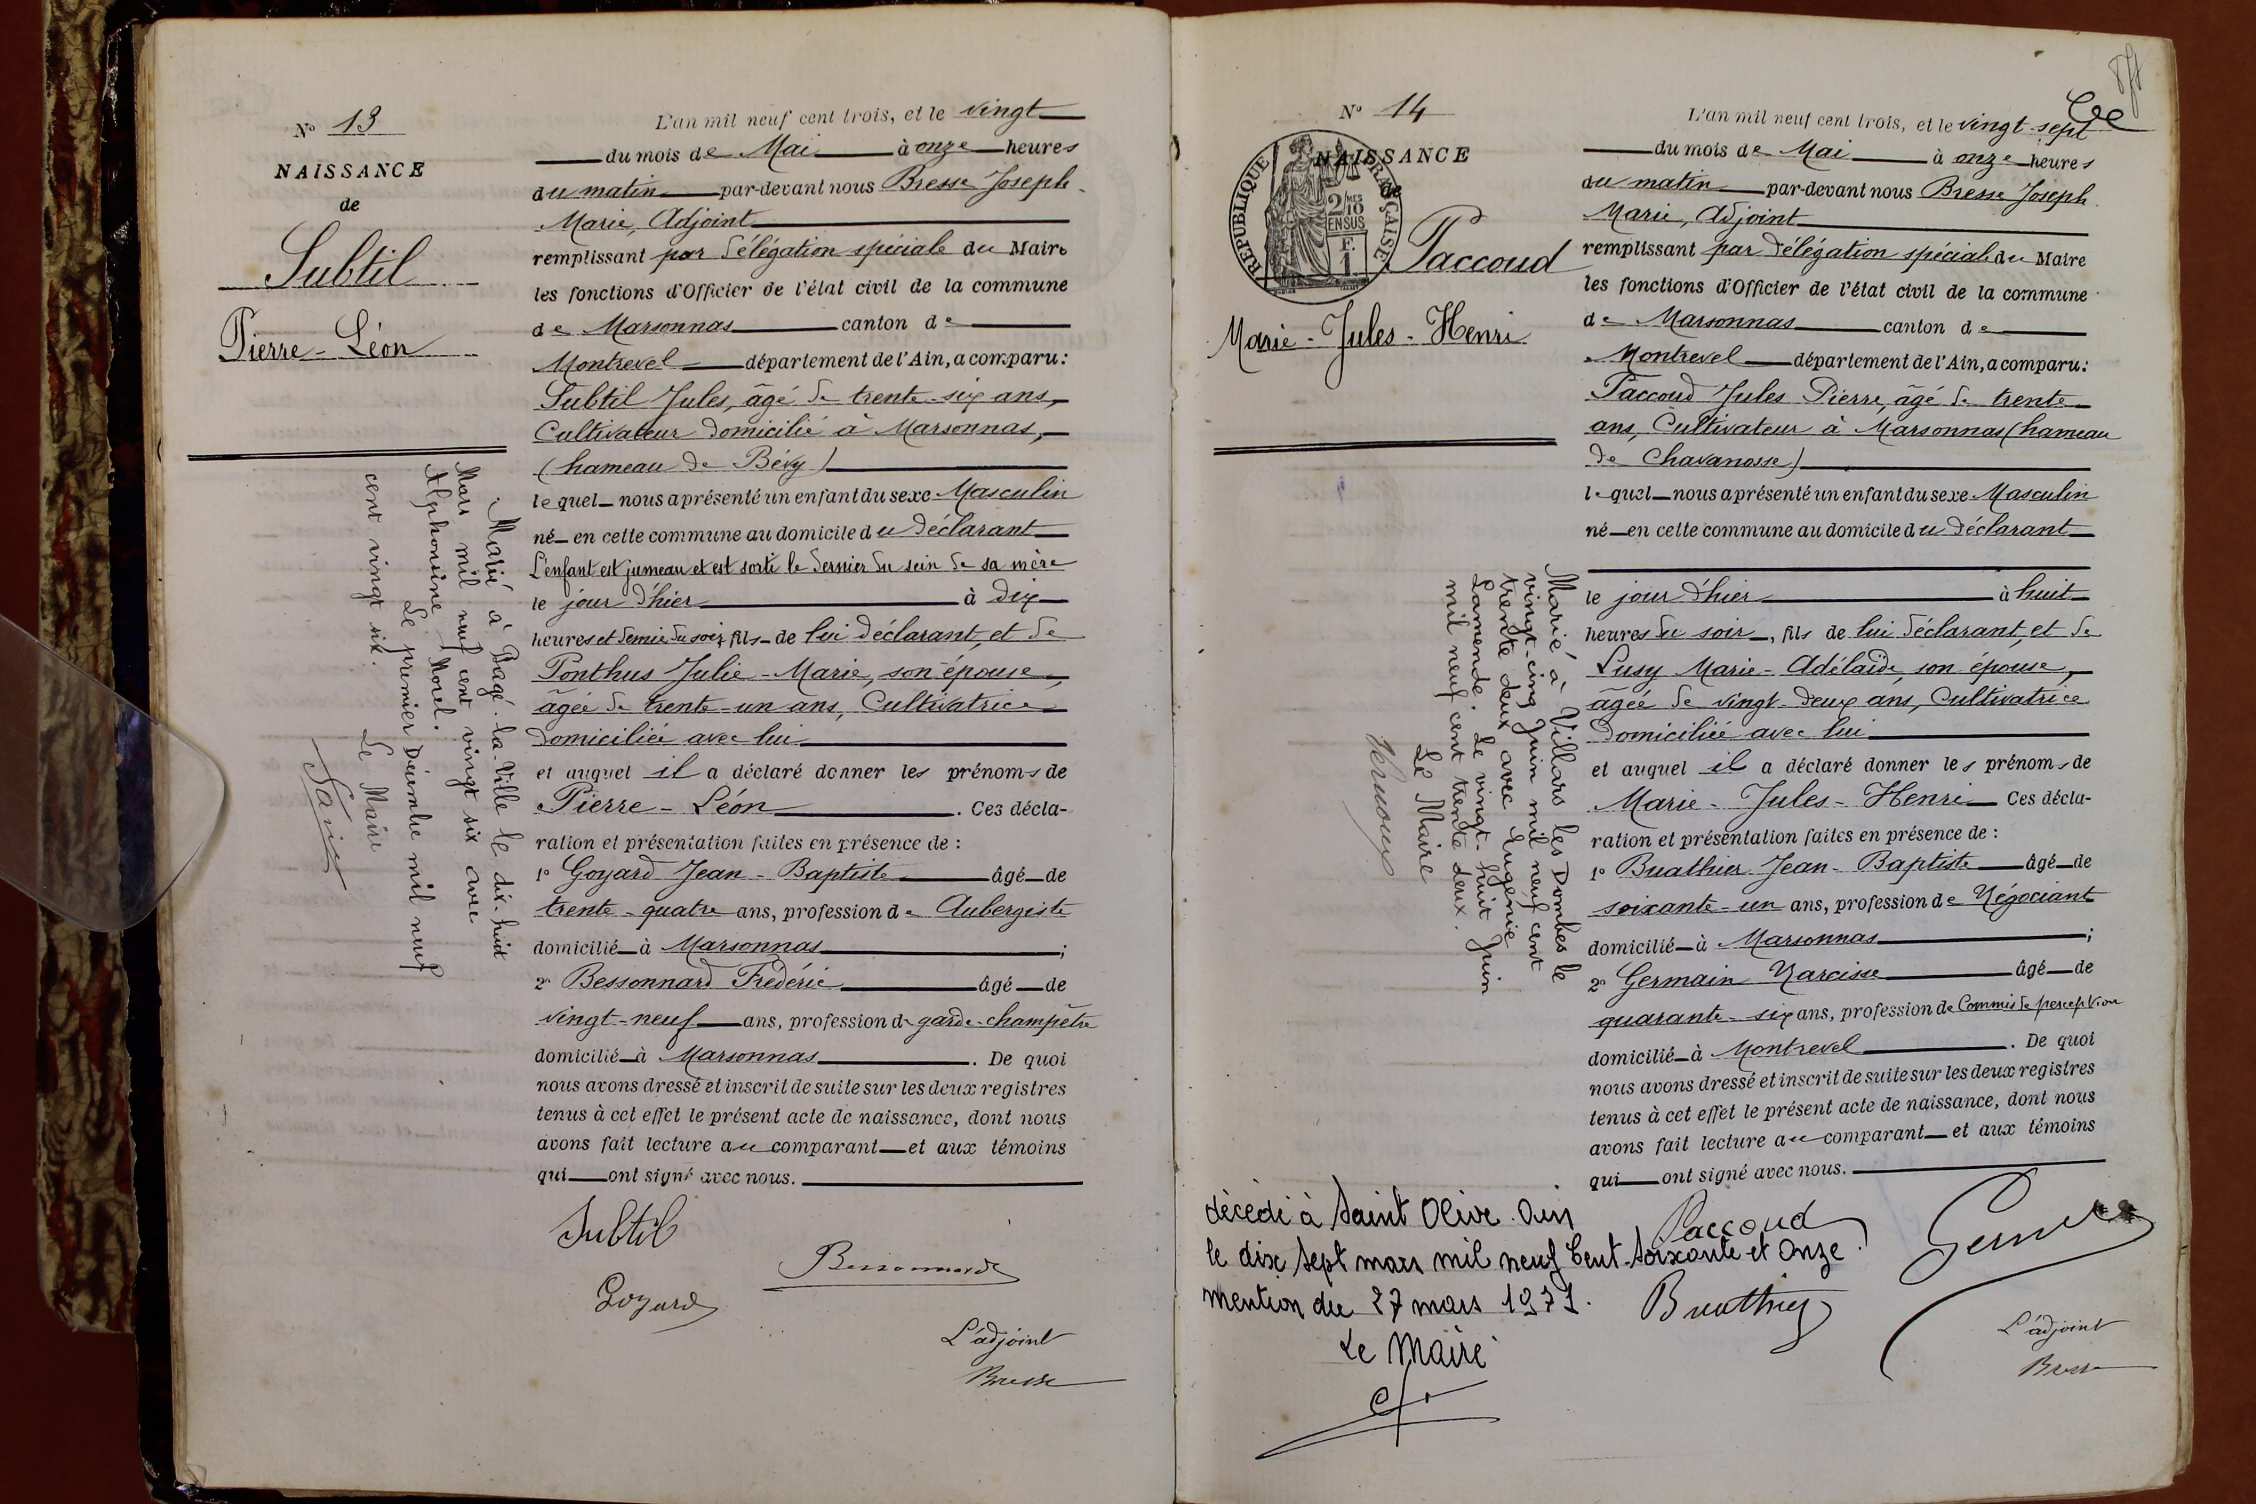 N° 13
NAISSANCE
de
Subtil
Pierre-Léon
L'an mil neuf cent trois, et le vingt
du mois de Mai à onze heures
du matin par-devant nous Bresse Joseph
Marie, Adjoint
remplissant par délégation spéciale du Maire
les fonctions d'Officier de l'état civil de la commune
de Marsonnas canton de
Montrevel département de l'Ain, a comparu:
Subtil Jules, âgé de trente-six ans,
Cultivateur domicilié à Marsonnas,
(hameau de Bévy)
lequel nous a présenté un enfant du sexe Masculin
né en cette commune au domicile du déclarant
L'enfant est jumeau et est sorti le dernier du sein de sa mère
le jour d'hier à dix
heures et demie du soir, fils de lui déclarant, et de
Ponthus Julie-Marie, son épouse,
âgée de trente-un ans, Cultivatrice
domiciliée avec lui
et auquel il a déclaré donner les prénoms de
Pierre-Léon. Ces décla-
ration et présentation faites en présence de :
1° Goyard Jean-Baptiste âgé de
trente-quatre ans, profession de Aubergiste
domicilié à Marsonnas ;
2° Bessonnard Frédéric âgé de
vingt-neuf ans, profession de garde-champêtre
domicilié à Marsonnas. De quoi
nous avons dressé et inscrit de suite sur les deux registres
tenus à cet effet le présent acte de naissance, dont nous
avons fait lecture au comparant et aux témoins
qui ont signé avec nous.
Subtil
Bessonnard
Goyard
L'adjoint
Bresse
Marié à Bagé-la-Ville le dix-huit
Mars mil neuf cent vingt six avec
Alphonsine Morel.
Le premier Décembre mil neuf
cent vingt six. Le Maire
N° 14
NAISSANCE
de
REPUBLIQUE FRANÇAISE
2/10 MES
EN SUS
F.
1
Paccoud
Marie-Jules-Henri
L'an mil neuf cent trois, et le vingt-sept
du mois de Mai à onze heures
du matin par-devant nous Bresse Joseph
Marie, Adjoint
remplissant par délégation spéciale du Maire
les fonctions d'Officier de l'état civil de la commune
de Marsonnas canton de
Montrevel département de l'Ain, a comparu:
Paccoud Jules Pierre, âgé de trente
ans, Cultivateur à Marsonnas (hameau
de Chavanosse)
lequel nous a présenté un enfant du sexe Masculin
né en cette commune au domicile du déclarant
le jour d'hier à huit
heures du soir, fils de lui déclarant, et de
Lusy Marie-Adélaïde, son épouse,
âgée de vingt-deux ans, Cultivatrice
domiciliée avec lui
et auquel il a déclaré donner les prénoms de
Marie-Jules-Henri Ces décla-
ration et présentation faites en présence de :
1° Buathier Jean-Baptiste âgé de
soixante-un ans, profession de Négociant
domicilié à Marsonnas ;
2° Germain Narcisse âgé de
quarante-six ans, profession de Commis de perception
domicilié à Montrevel. De quoi
nous avons dressé et inscrit de suite sur les deux registres
tenus à cet effet le présent acte de naissance, dont nous
avons fait lecture au comparant et aux témoins
qui ont signé avec nous.
Paccoud
Buathier
L'adjoint
Bresse
Marié à Villars les Dombes le
vingt-cinq Juin mil neuf cent
trente deux avec Eugénie
Lamende. Le vingt-huit Juin
mil neuf cent trente deux.
Le Maire
décédé à Saint Olive. Ain
le dix sept mars mil neuf Cent Soixante et Onze.
mention du 27 mars 1971.
Le Maire